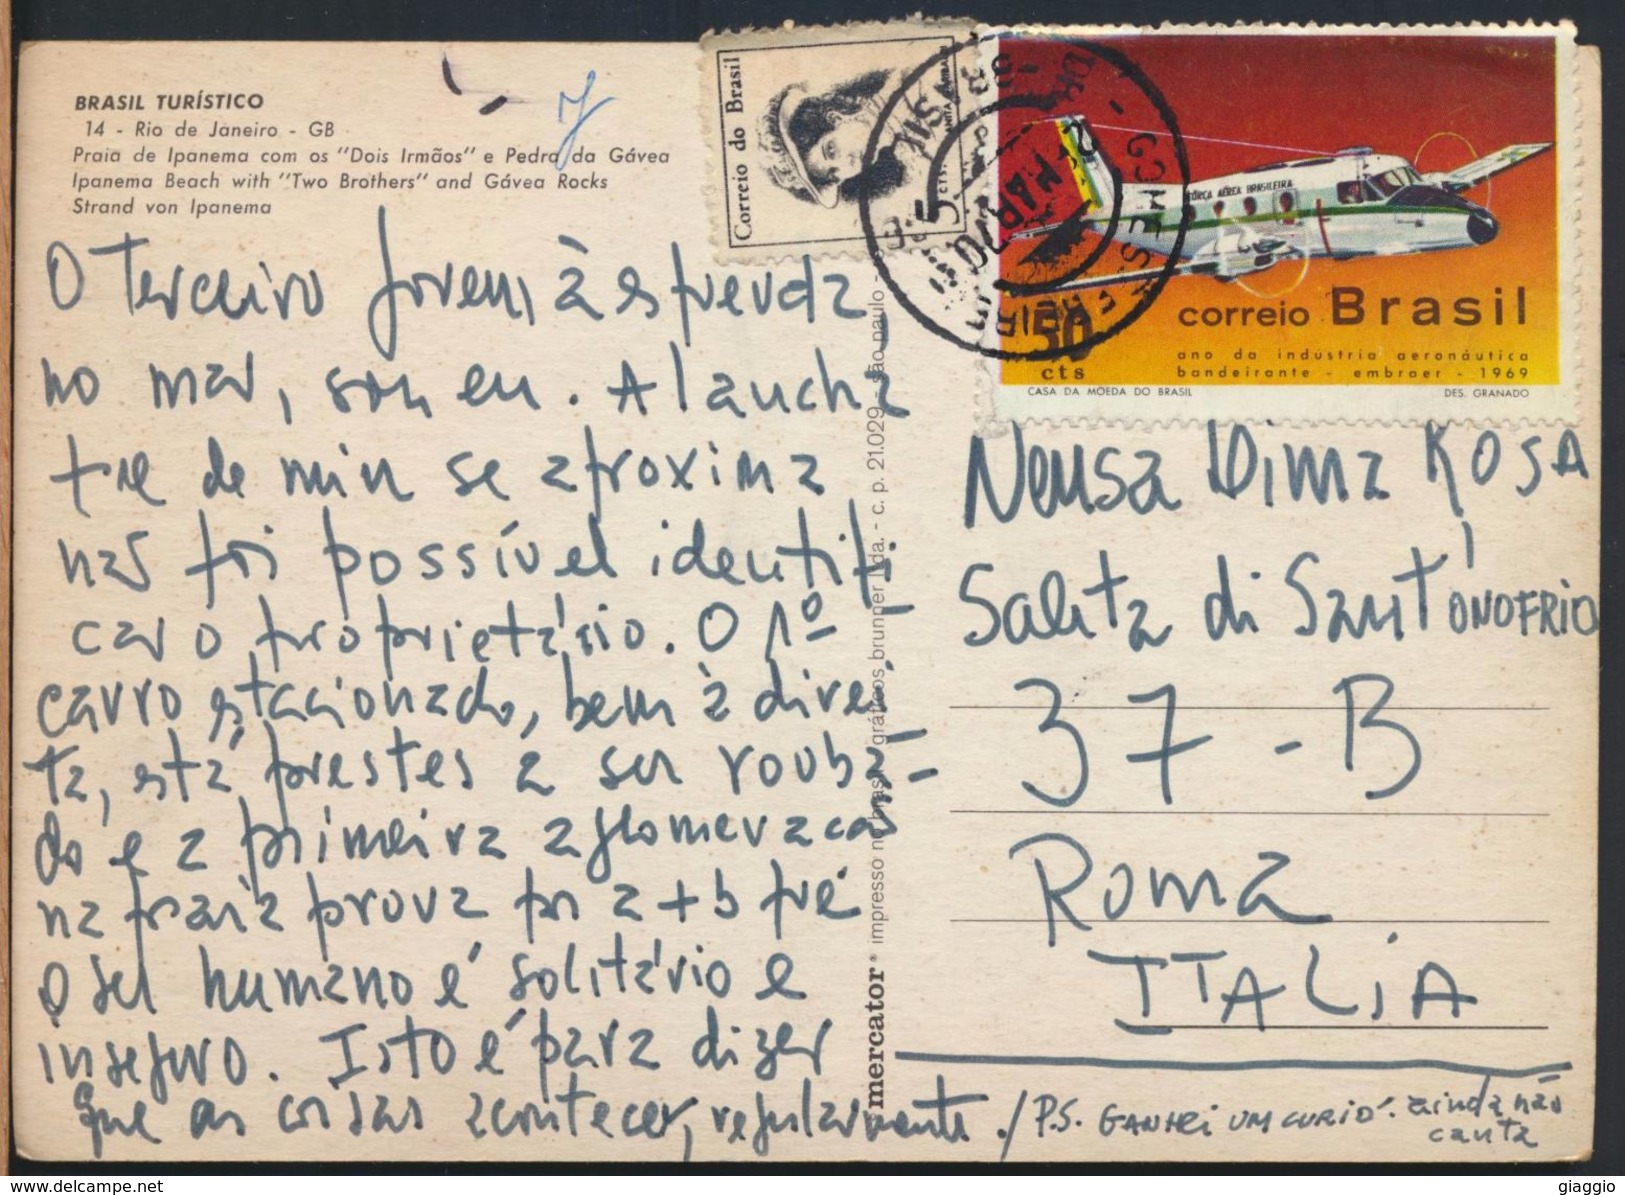 BRASIL TURÍSTICO
14 - Rio de Janeiro - GB
Praia de Ipanema com os "Dois Irmãos" e Pedra da Gávea
Ipanema Beach with "Two Brothers" and Gávea Rocks
Strand von Ipanema
Correio do Brasil
5
cts.
FÔRÇA AÉREA BRASILEIRA
correio Brasil
50
cts
ano da indústria aeronáutica
bandeirante - embraer - 1969
CASA DA MOEDA DO BRASIL
DES. GRANADO
O Terceiro jovem à esquerda
no mar, sou eu. A lancha
que de mim se aproxima
nas foi possível identifi-
car o proprietário. O 1º
carro estacionado, bem à direi-
ta, está prestes a ser rouba-
do e a primeira aglomeracas
na praia prova por a + b que
o ser humano é solitário e
inseguro. Isto é para dizer
que as coisas acontecem, regularmente. / P.S. GANHEI UM CURIÓ. ainda não
canta
mercator impresso no brasil gráficos brunner ltda. - c. p. 21.029 - são paulo -
Neusa Dima ROSA
Salita di Sant'ONOFRIO
37 - B
ROMA
ITALIA
www.delcampe.net
giaggio